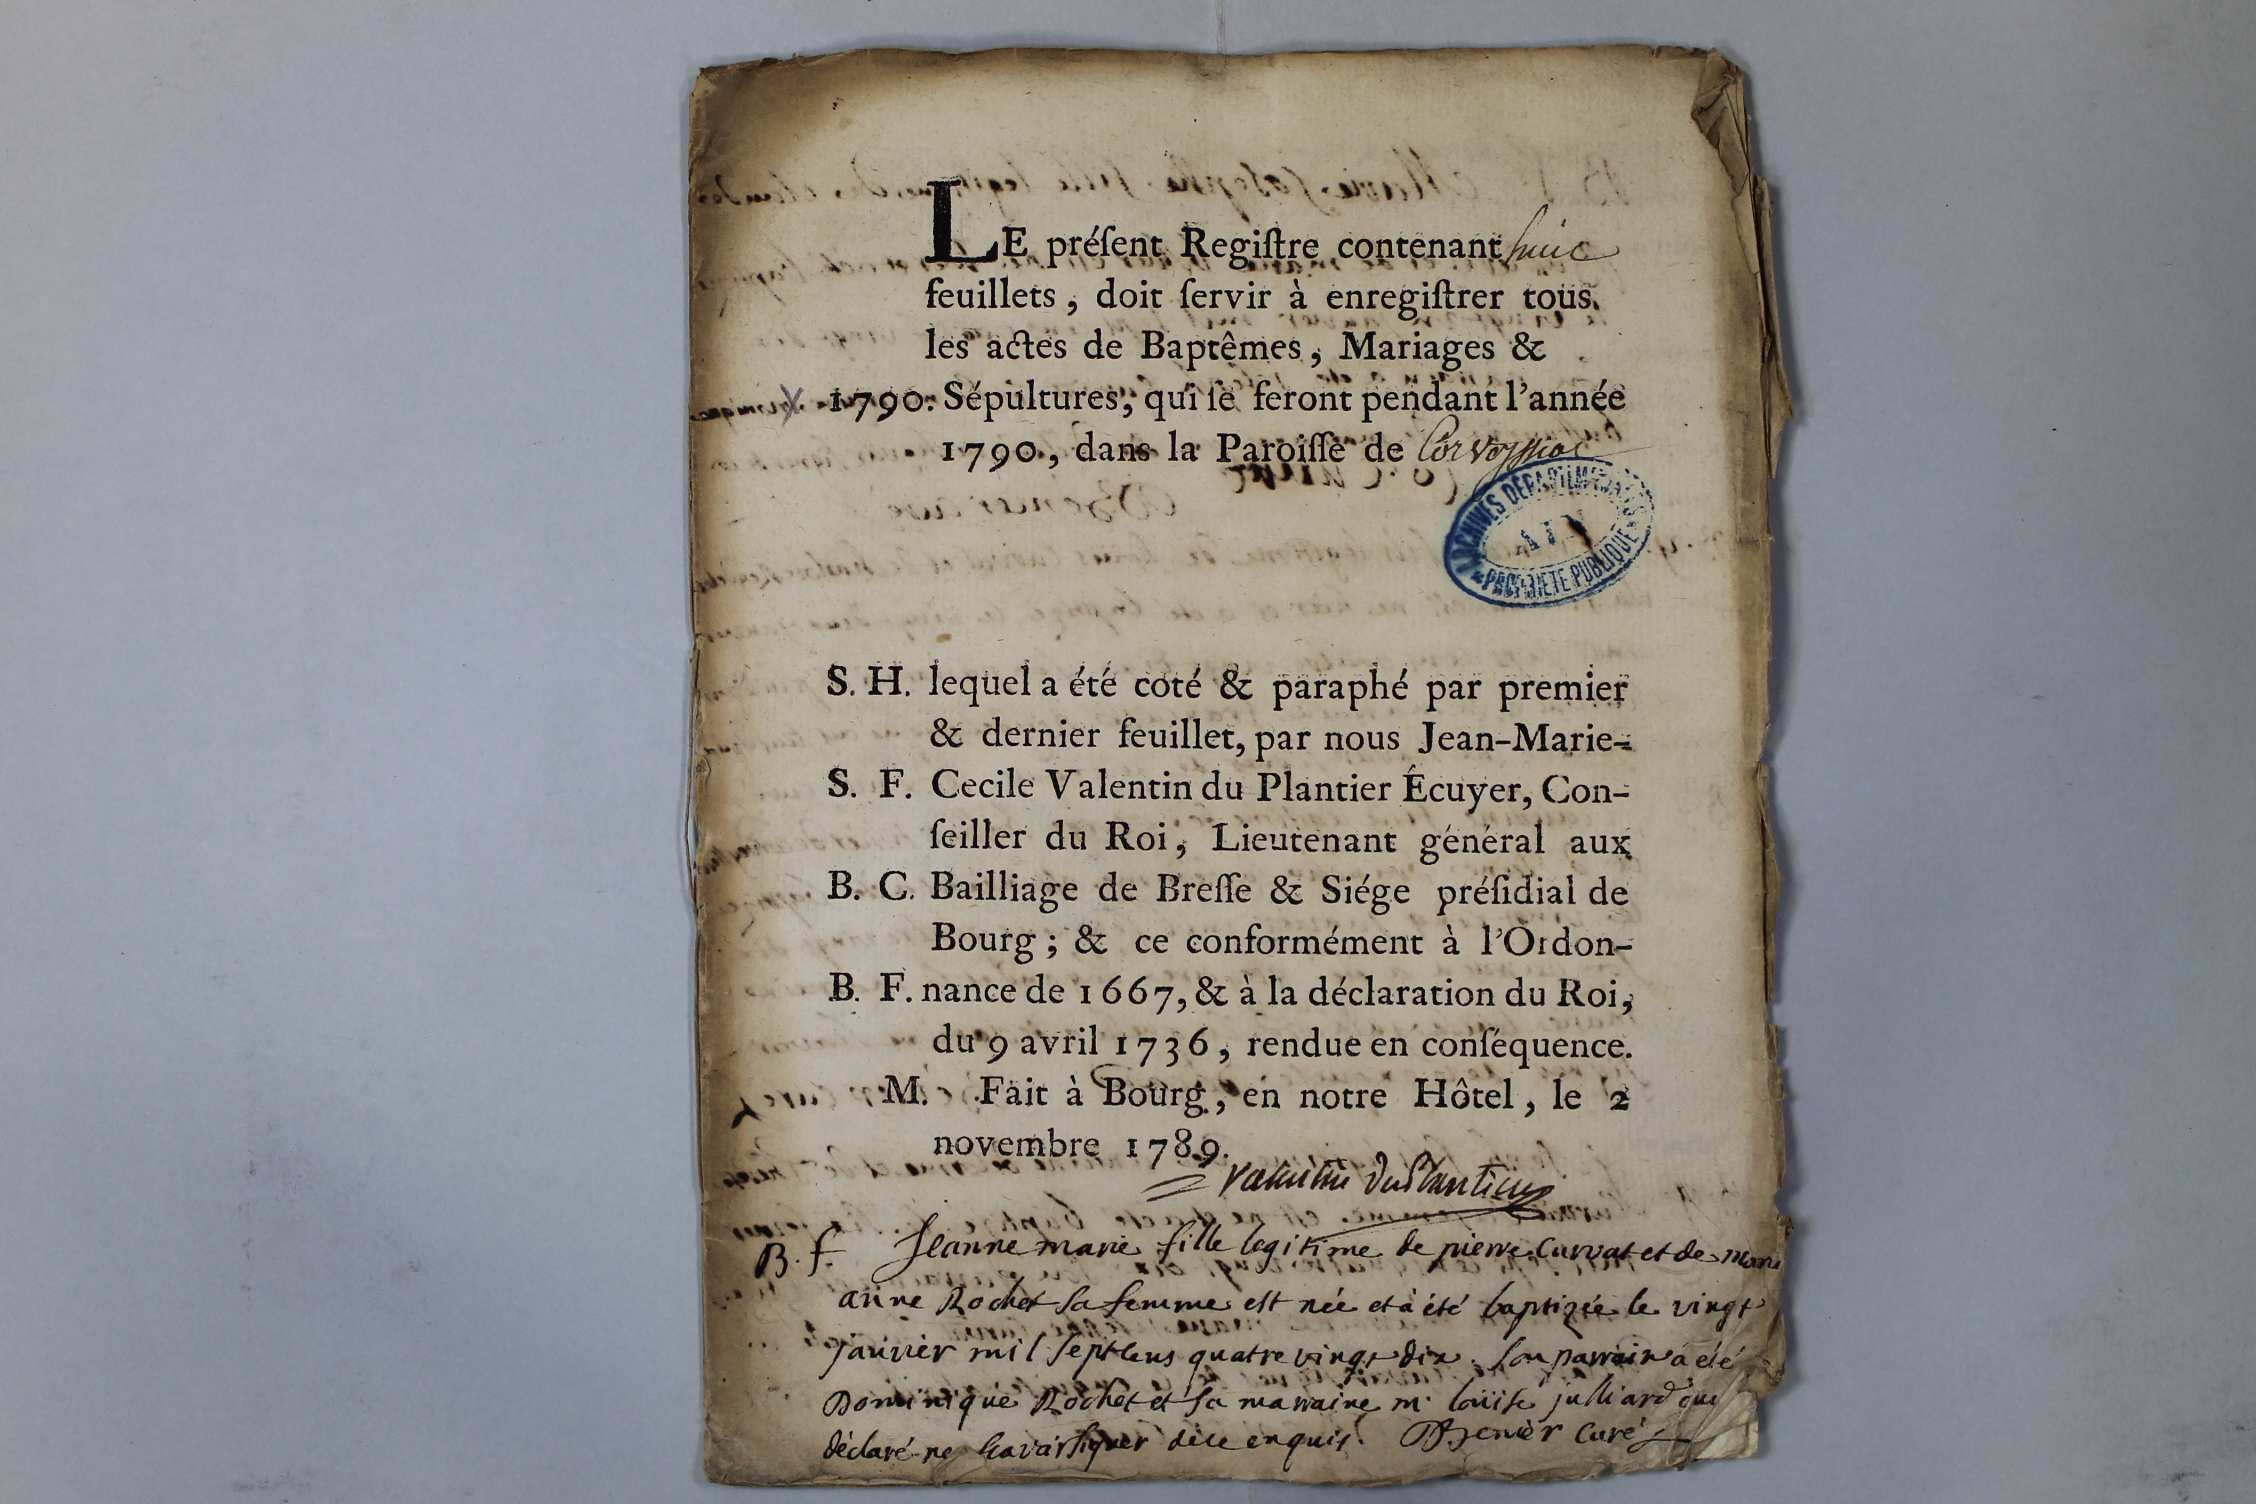 LE préſent Regiſtre contenant huit
feuillets, doit ſervir à enregiſtrer tous
les actes de Baptêmes, Mariages &
1790. Sépultures, qui ſe feront pendant l'année
1790, dans la Paroiſſe de
ARCHIVES DÉPARTEMENTALES
AIN
PROPRIÉTÉ PUBLIQUE
S. H. lequel a été coté & paraphé par premier
& dernier feuillet, par nous Jean-Marie-
S. F. Cecile Valentin du Plantier Écuyer, Con-
ſeiller du Roi, Lieutenant général aux
B. C. Bailliage de Breſſe & Siége préſidial de
Bourg; & ce conformément à l'Ordon-
B. F. nance de 1667, & à la déclaration du Roi,
du 9 avril 1736, rendue en conſéquence.
M. Fait à Bourg, en notre Hôtel, le 2
novembre 1789.
Valentin DuPlantier
B. f. Jeanne marie fille legitime de pierre Curvat et de marie
anne Rochet sa femme est née et à été baptizée le vingt
janvier mil sept cens quatre vingt dix. son parrain a été
Dominique Rochet et sa marraine m. loüise julliard qui
déclaré ne savoir signer dece enquis. Brenier Curé